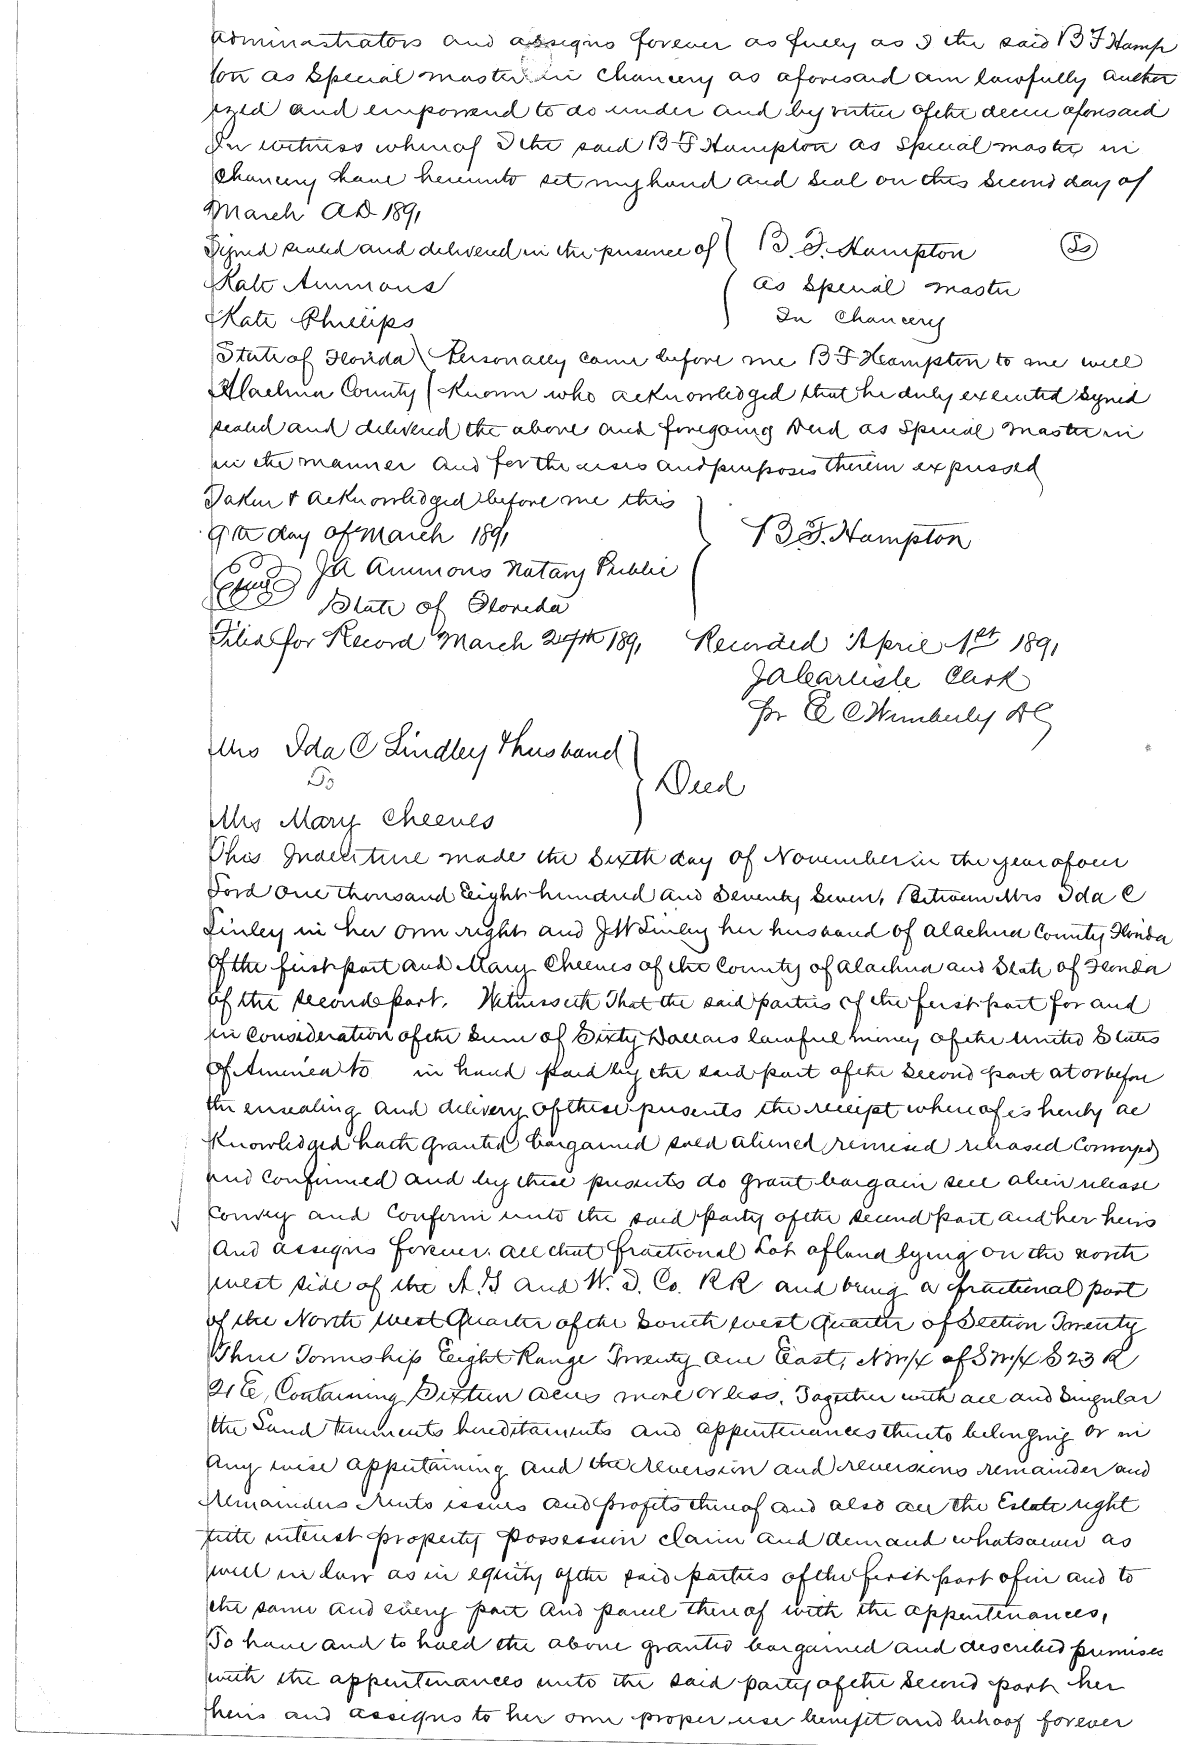 administrators and assigns forever as fully as I the said B F Hamp
ton as Special master in Chancery as aforesaid am lawfully author
ized and empowered to do under and by virtue of the decree aforesaid
In witness whereof I the said B F Hampton as Special master in
Chancery have hereunto set my hand and Seal on this Second day of
March A.D. 1891
Signed sealed and delivered in the presence of B. F. Hampton
Kate Ammons as Special master
Kate Phillips In Chancery
State of Florida Personally came before me B F Hampton to me well
Alachua County Known who acknowledged that he duly executed signed
sealed and delivered the above and foregoing Deed as Special Master in
in the manner and for the uses and purposes therein expressed
Taken & acknowledged before me this
9th day of March 1891 B. F. Hampton
J A Ammons Notary Public
State of Florida
Filed for Record March 27th 1891 Recorded April 1st 1891
J A Carlisle Clerk
pr E C Wimberly DC
Mrs Ida C Lindley & husband
To Deed
Mrs Mary Cheeves
This Indenture made the Sixth day of November in the year of our
Lord One thousand Eight hundred and Seventy Seven, Between Mrs Ida C
Linley in her own right and J W Linley her husband of Alachua County Florida
of the first part and Mary Cheeves of the County of Alachua and State of Florida
of the second part. Witnesseth That the said parties of the first part for and
in consideration of the Sum of Sixty Dollars lawful money of the United States
of America to in hand paid by the said part of the Second part at or before
the ensealing and delivery of these presents the receipt whereof is hereby ac
Knowledged hath granted bargained sold aliened remised released Conveyed
and Confirmed and by these presents do grant bargain sell alien release
Convey and Confirm unto the said party of the second part and her heirs
And assigns forever. all that fractional Lot of land lying on the north
west side of the A. G and W. I. Co. RR and being a fractional part
of the North West Quarter of the South west Quarter of Section Twenty
Three Township Eight Range Twenty one East, NW/4 of SW/4 S 23 R
21 E, Containing Sixteen acres more or less. Together with all and Singular
the Land tenements hereditaments and appertenances thereto belonging or in
any wise appertaining and the reversion and reversions remainder and
remainders rents issues and profits thereof and also all the Estate right
title interest property possession claim and demand whatsoever as
well in law as in equity of the said parties of the first part of in and to
the same and every part and parcel thereof with the appertenances,
To have and to hold the above granted bargained and described premises
with the appertenances unto the said party of the Second part her
heirs and assigns to her own proper use benefit and behoof forever